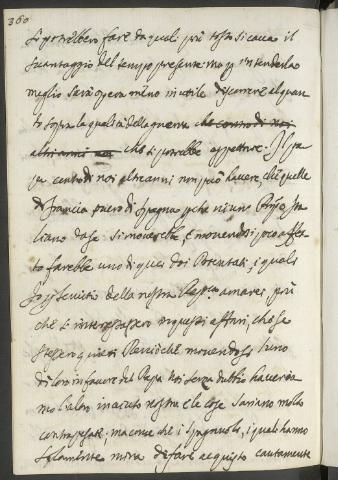 360
si potrebbero fare da quali più tosto si cava il
svantaggio del tempo presente ma p intenderla
meglio sarà opera meno inutile discorrere alquan
to sopra la qualità della guerra che contro di noi
altri anni che si potrebbe aspettare. Il Pa
pa contro di noi altre armi non può havere, che quelle
di Francia overo di Spagna p che niuno Pnpe Ita
liano da se si moverebbe, e movendosi poco effet
to farebbe uno di quei doi Potentati, i quali
p servitio della nostra Rep.ca amarei più
che s'interessassero in questi affari, che se
stessero quieti Perciò che movendosi l'uno
di loro in favore del Papa noi senza dubbio haveres
mo l'altro in aiuto nostro e le cose sariano molto
contrapesate; ma come che i Spagnuoli, i quali hanno
solamente mira di fare acquisto cautamente